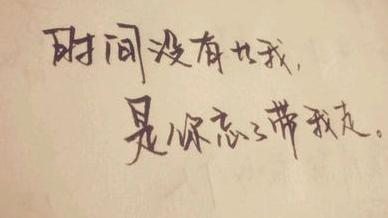 时间没有等我，
是你忘了带我走。